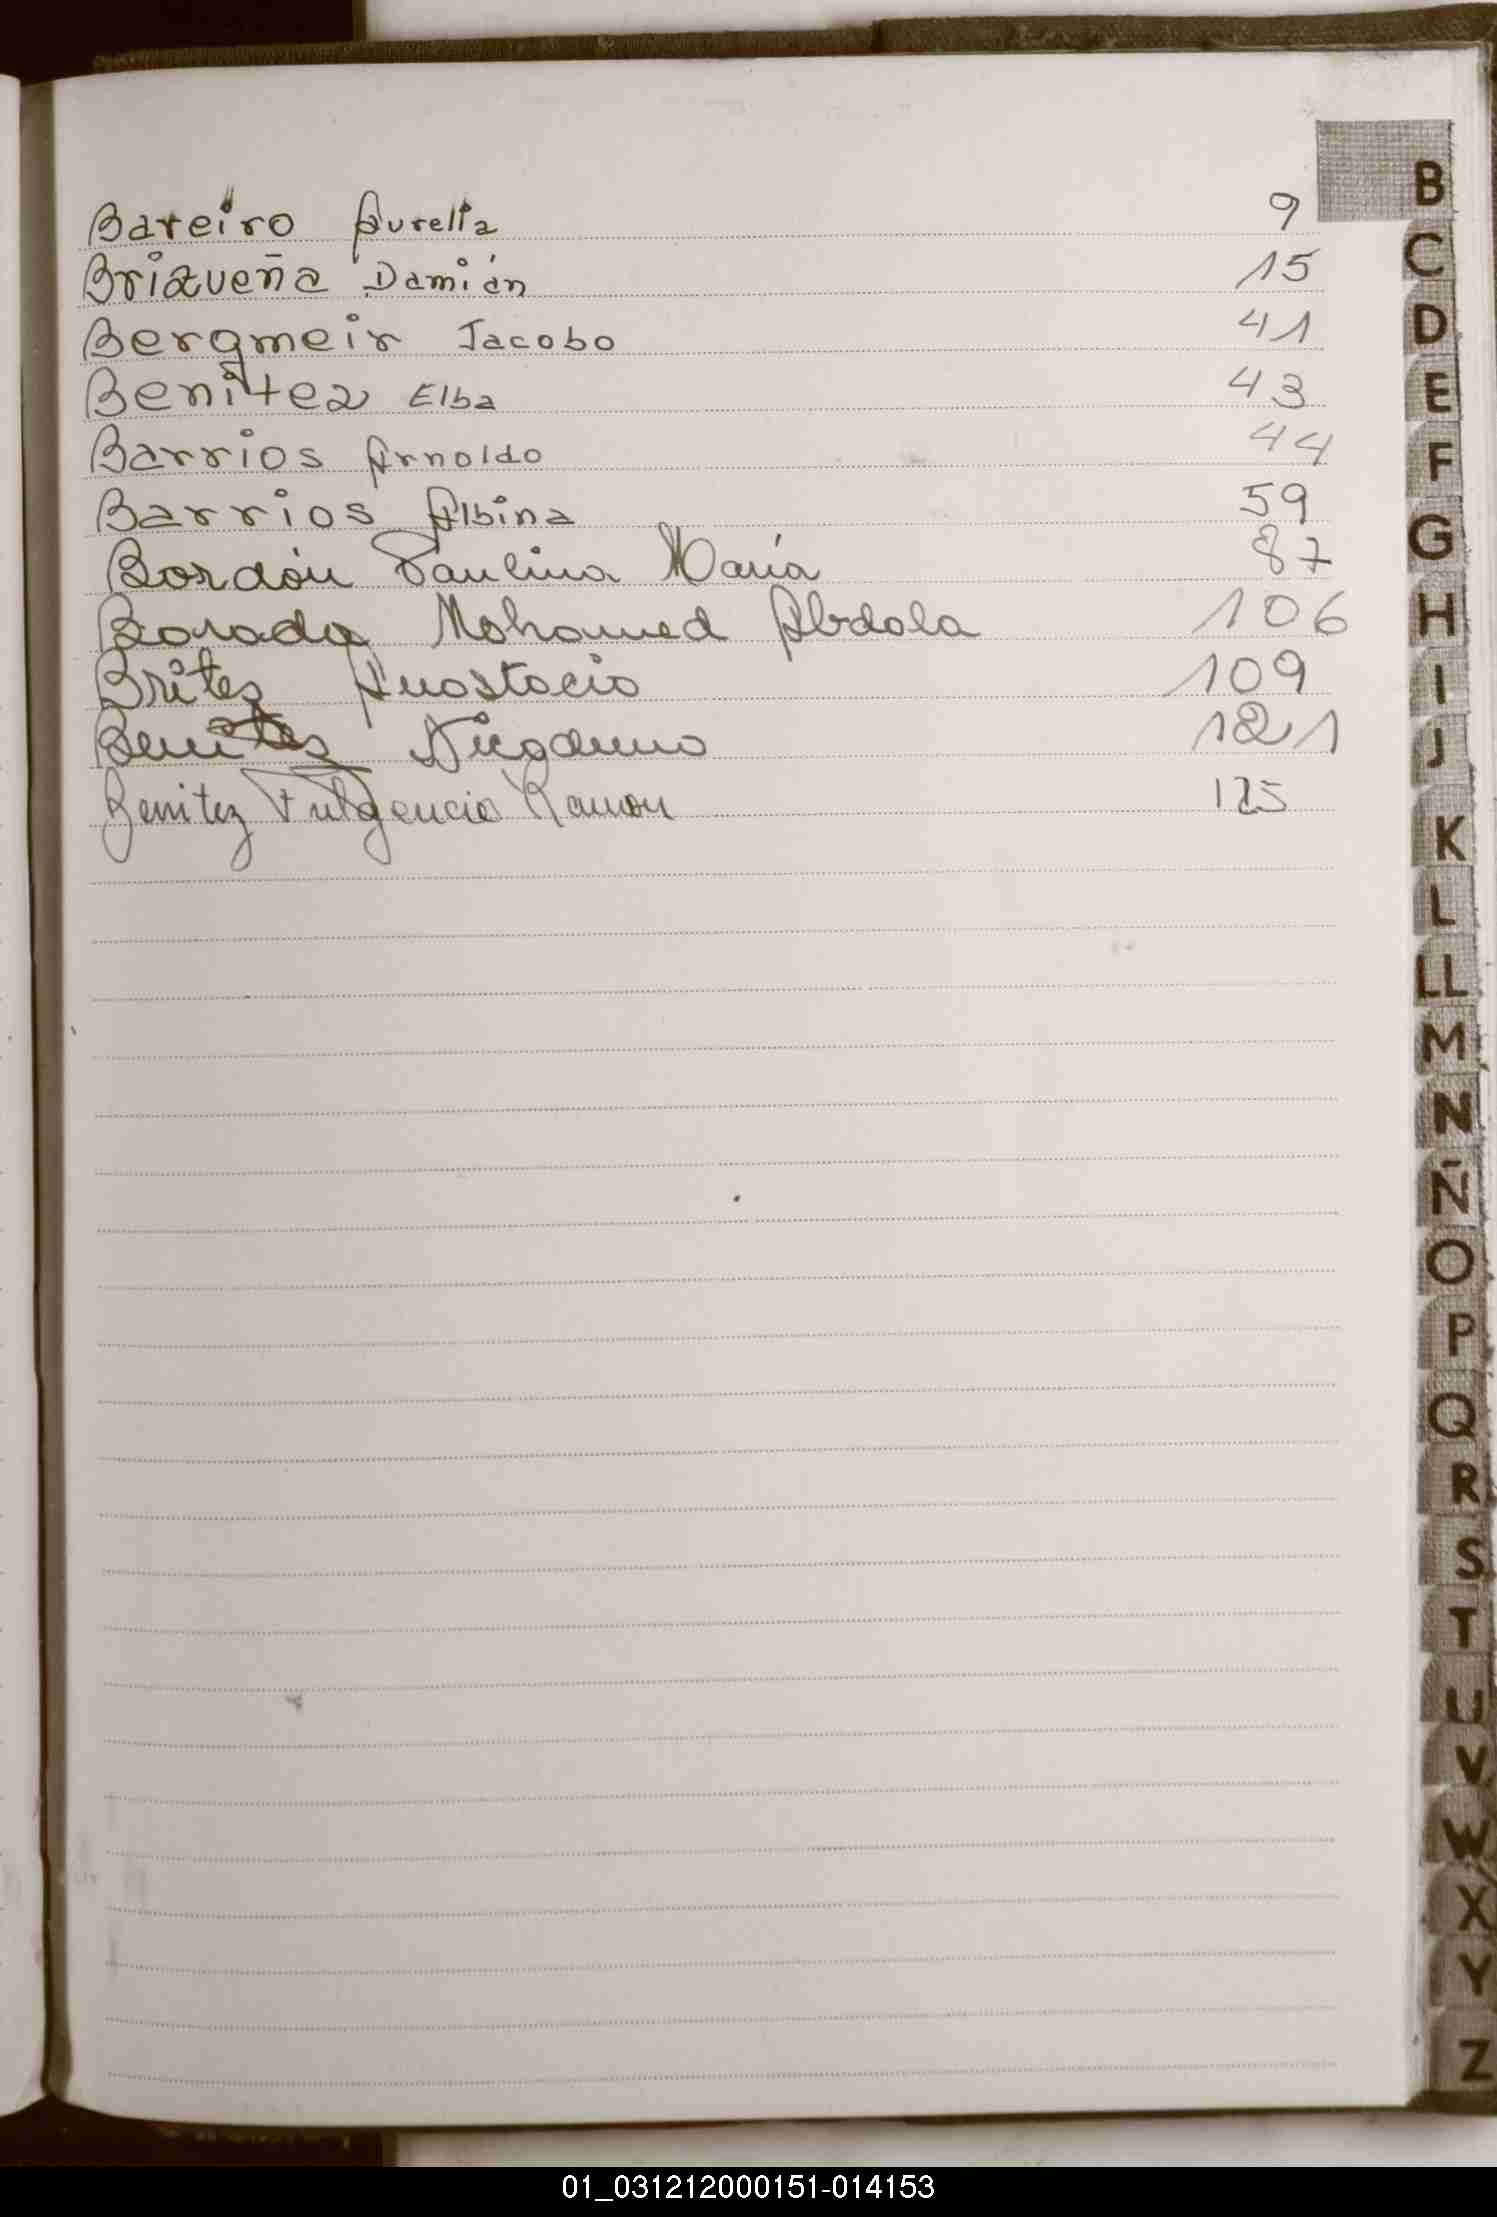 Bareiro Aurelia 9
Brizueña Damián 15
Bergmeir Jacobo 41
Benitez Elba 43
Barrios Arnoldo 44
Barrios Albina 59
Bordón Paulina María 87
Mohamed Abdala 106
Britez Anastacio 109
Benitez Nicodemo 121
Benitez Fulgencio Ramon 125
B
C
D
E
F
G
H
I
J
K
L
LL
M
N
Ñ
O
P
Q
R
S
T
U
V
W
X
Y
Z
01_031212000151-014153